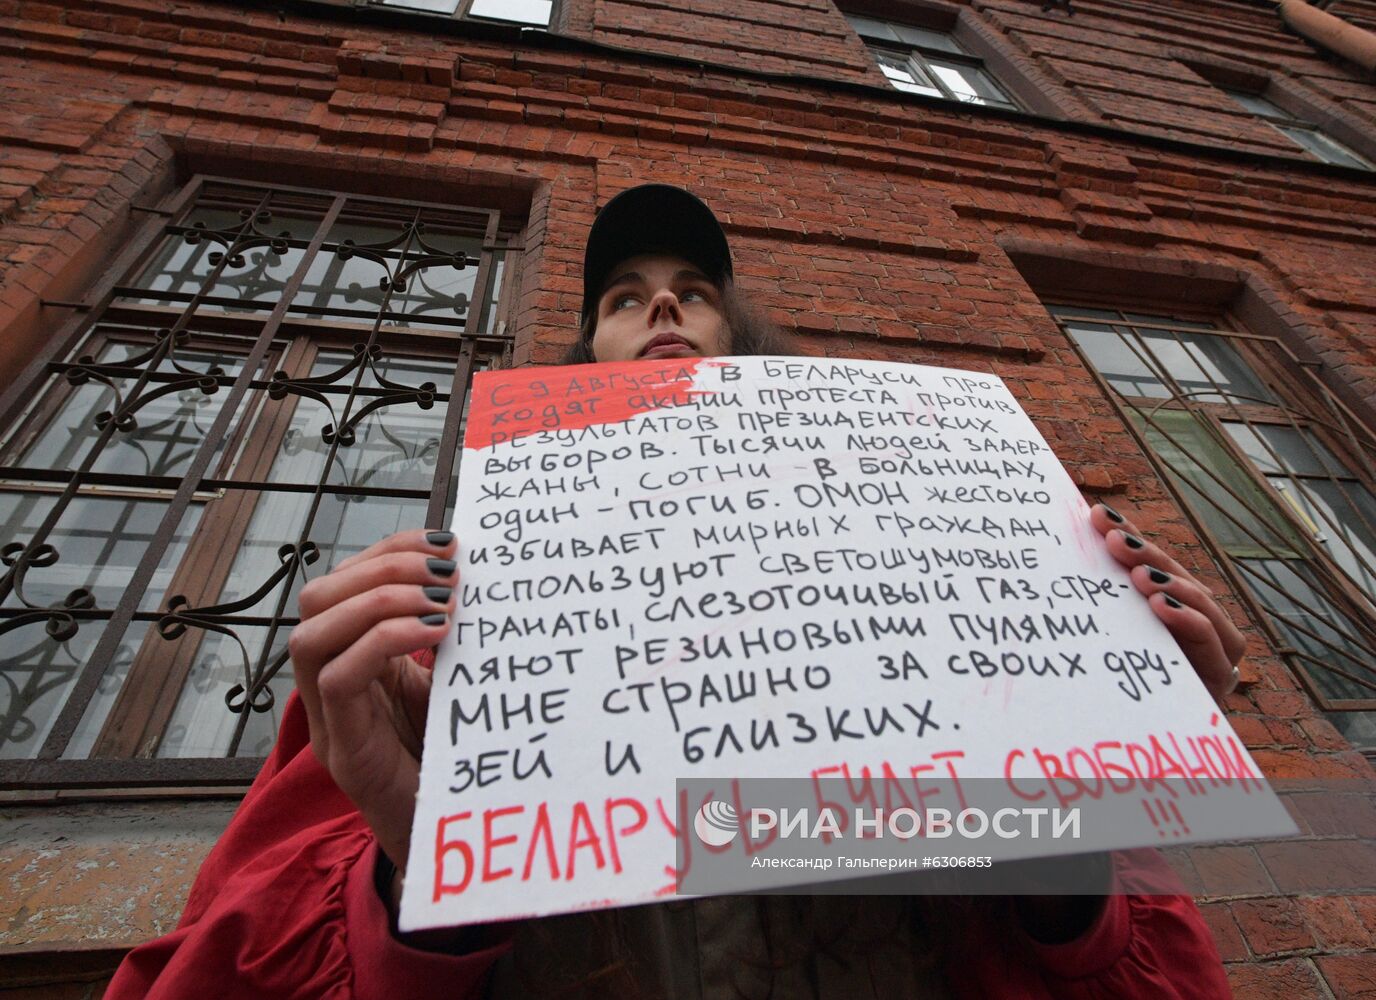 С 9 АВГУСТА В БЕЛАРУСИ ПРО-
ХОДЯТ АКЦИИ ПРОТЕСТА ПРОТИВ
РЕЗУЛЬТАТОВ ПРЕЗИДЕНТСКИХ
ВЫБОРОВ. ТЫСЯЧИ ЛЮДЕЙ ЗАДЕР-
ЖАНЫ, СОТНИ - В БОЛЬНИЦАХ,
ОДИН - ПОГИБ. ОМОН ЖЕСТОКО
ИЗБИВАЕТ МИРНЫХ ГРАЖДАН,
ИСПОЛЬЗУЮТ СВЕТОШУМОВЫЕ
ГРАНАТЫ, СЛЕЗОТОЧИВЫЙ ГАЗ, СТРЕ-
ЛЯЮТ РЕЗИНОВЫМИ ПУЛЯМИ.
МНЕ СТРАШНО ЗА СВОИХ ДРУ-
ЗЕЙ И БЛИЗКИХ.
БЕЛАРУСЬ БУДЕТ СВОБОДНОЙ
!!!
РИА НОВОСТИ
Александр Гальперин #6306853